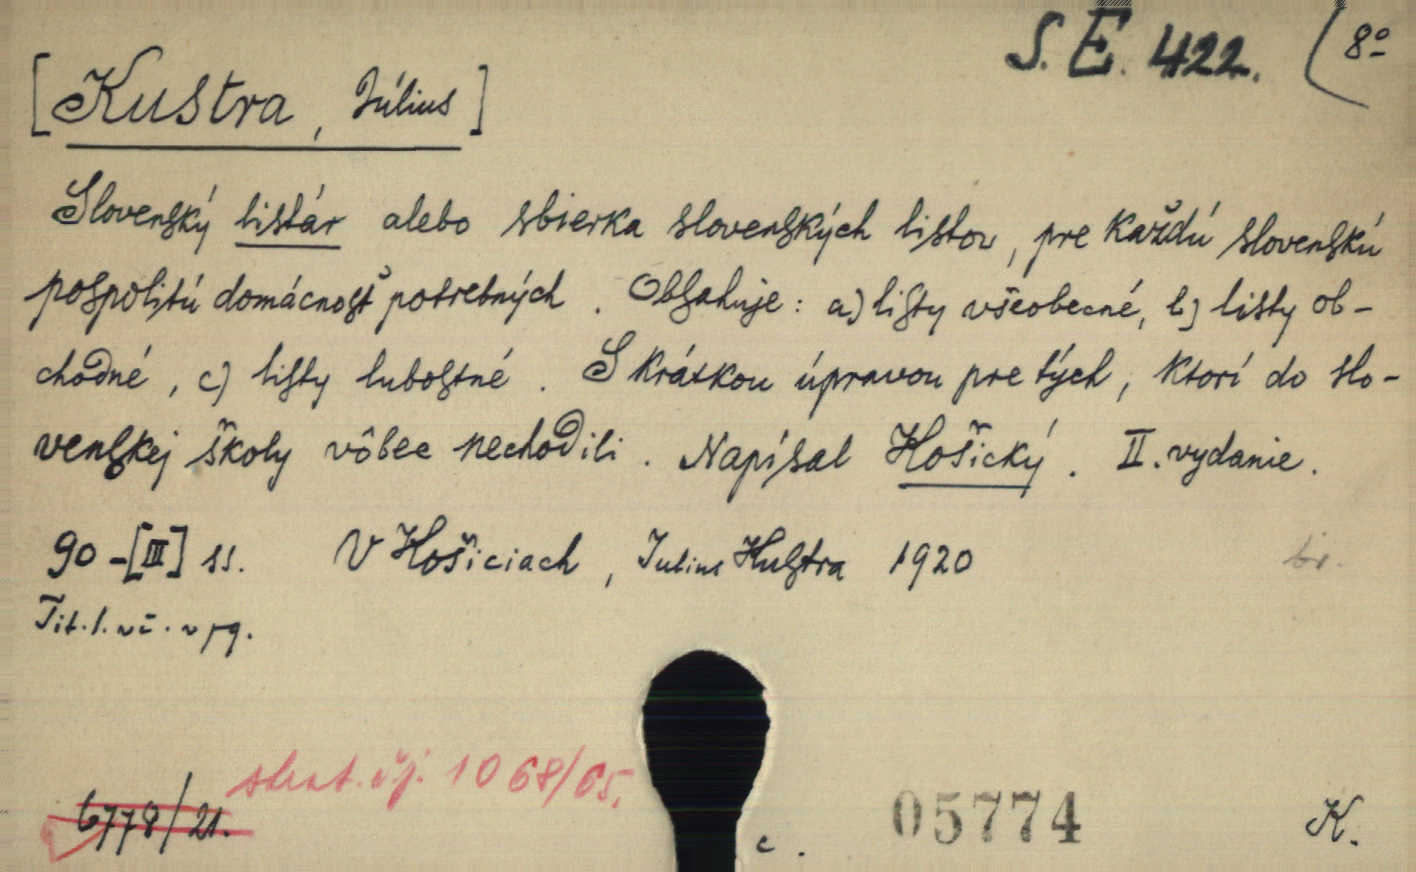 S. E. 422. (8º
[Kustra, Július]
Slovenský listár alebo sbierka slovenských listov, pre každú slovenskú
pospolitú domácnosť potrebných. Obsahuje: a) listy všeobecné, b) listy ob-
chodné, c) listy lubostné. S krátkou úpravou pre tých, ktorí do slo-
venskej školy vôbec nechodili. Napísal Košický. II. vydanie.
90-[III] ss. V Košiciach, Julius Kustra 1920
Tit. l. vč. v pg.
skart. čj. 1068/65.
6778/21.
c. 05774 K.